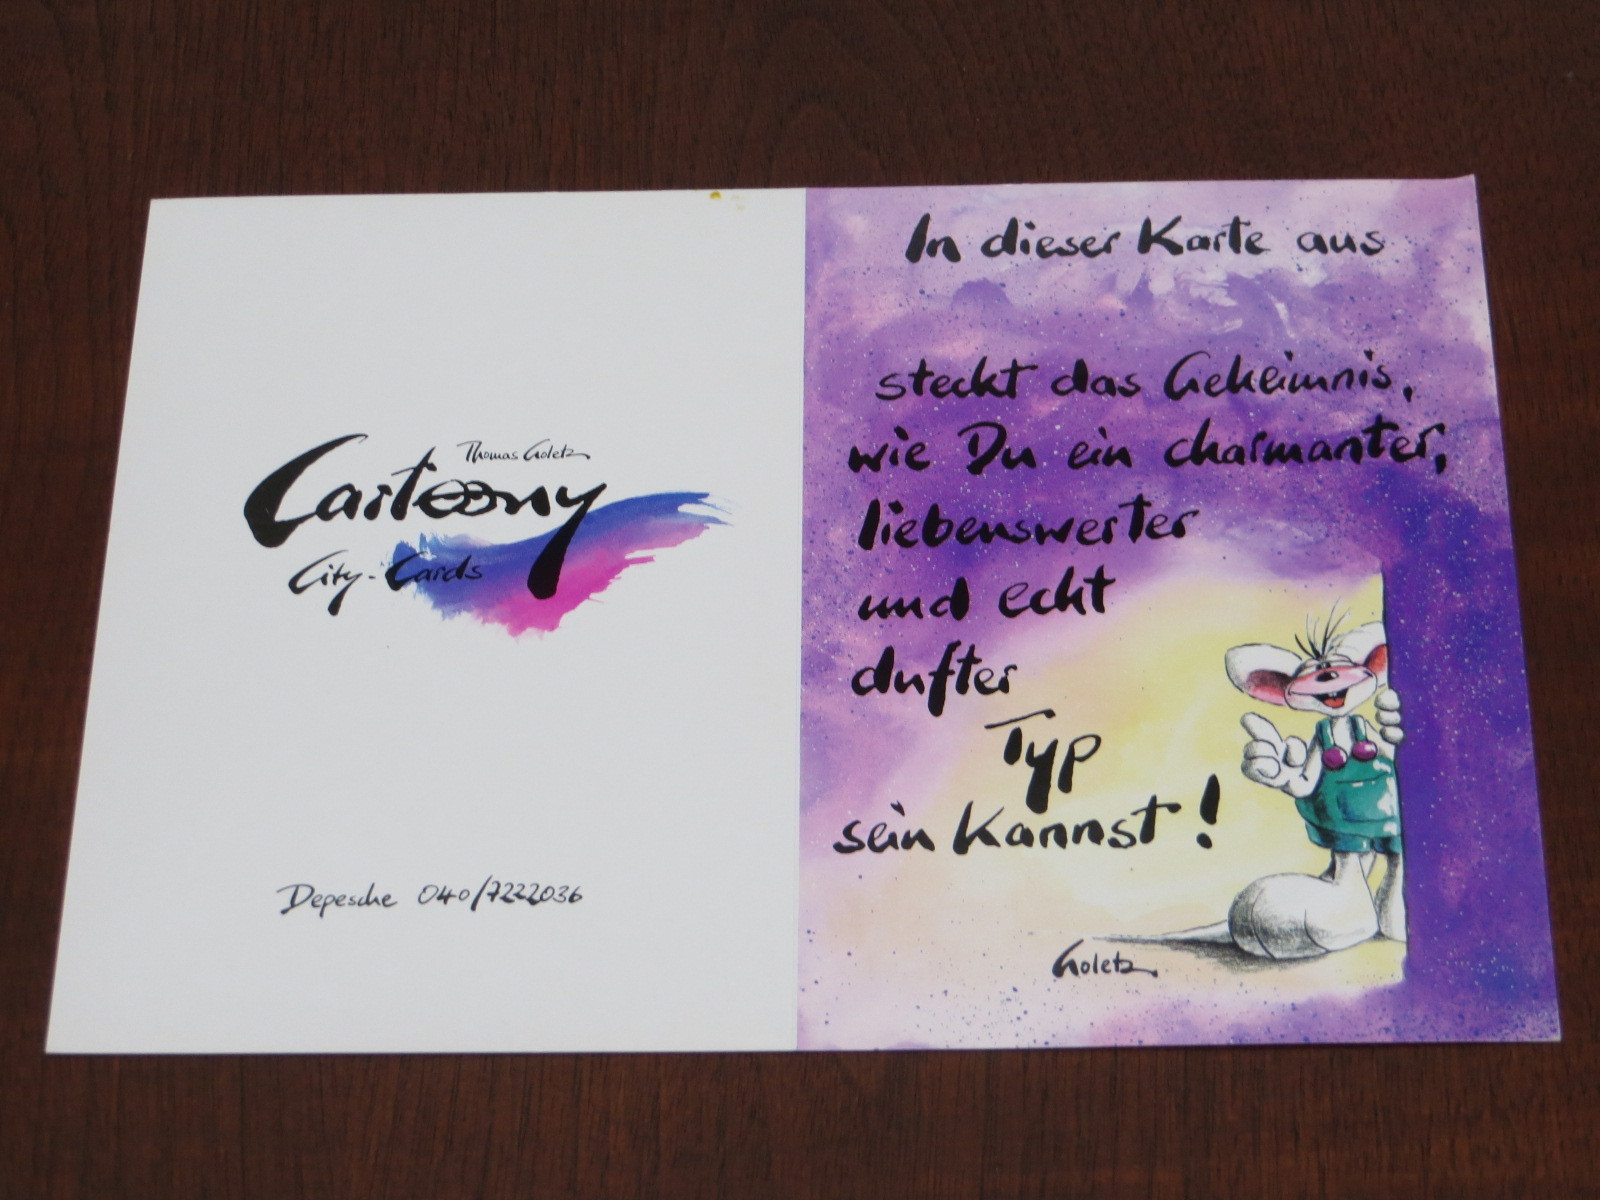 Thomas Goletz
Cartoony
City-Cards
Depesche 040/7222036
In dieser Karte aus
steckt das Geheimnis,
wie Du ein charmanter,
liebenswerter
und echt
dufter
Typ
sein kannst!
Goletz